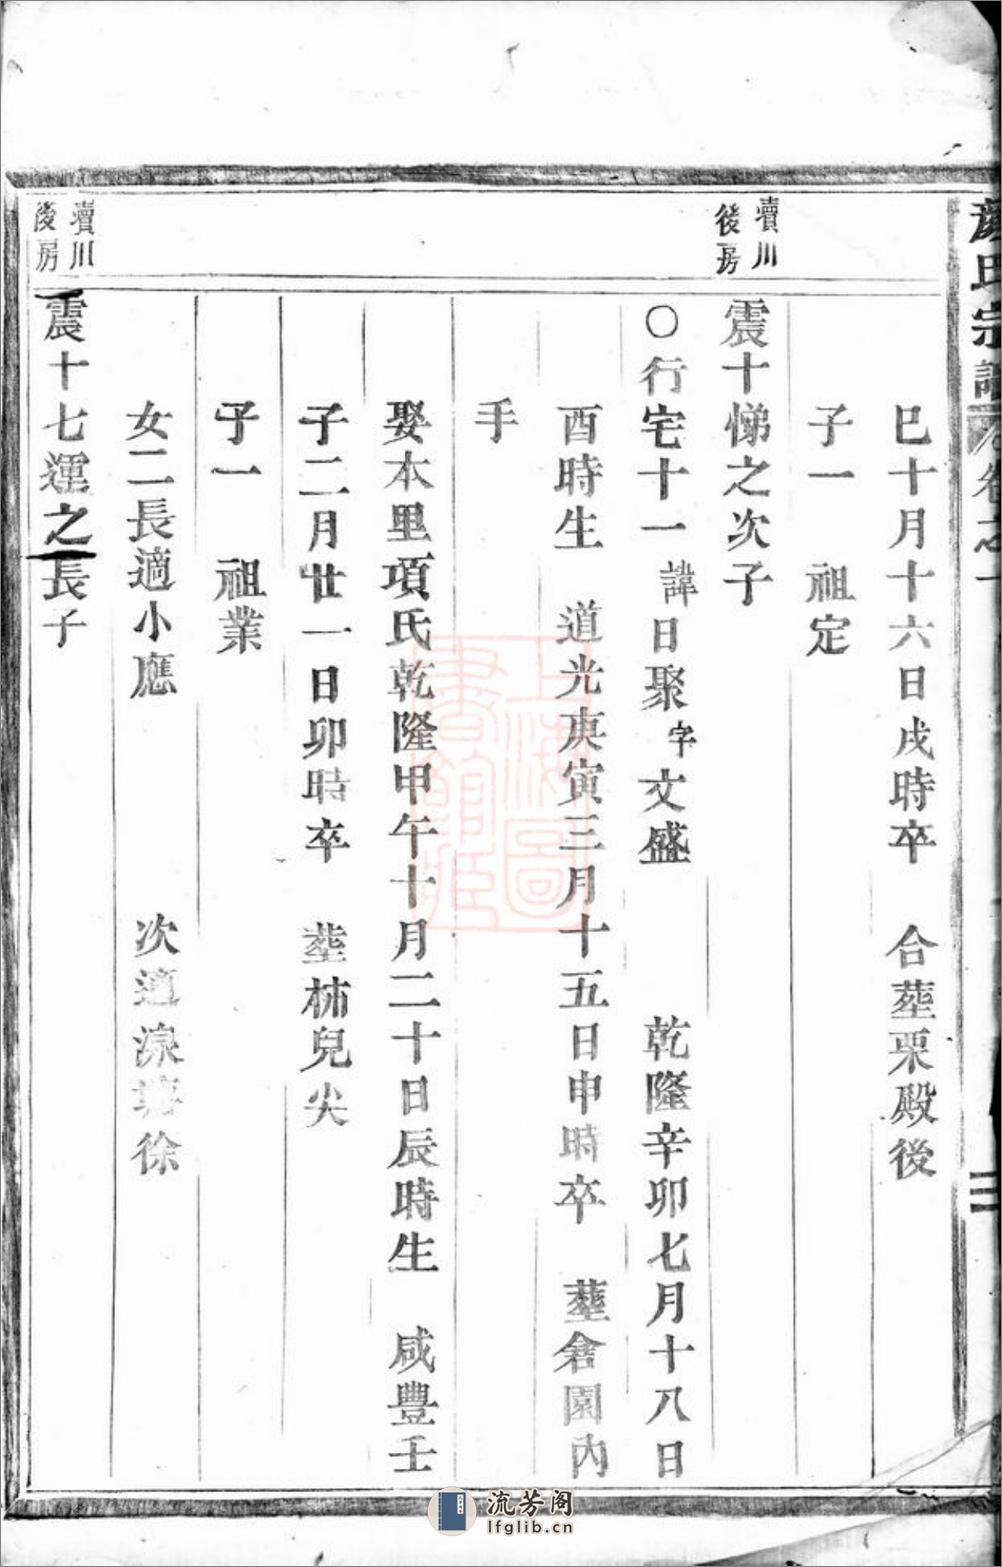 氏宗譜 卷之一
三
巳十月十六日戌時卒 合塟栗殿後
子一 祖定
瀆川後房
震十悌之次子
〇行宅十一 諱日聚 字文盛 乾隆辛卯七月十八日
酉時生 道光庚寅三月十五日申時卒 塟倉園內
手
娶本里項氏乾隆甲午十月二十日辰時生 咸豐壬
子二月廿一日卯時卒 塟柿兒尖
子一 祖業
女二長適小應 次適 徐
瀆川後房
震十七運之長子
上海圖書館藏
流芳阁
lfglib.cn